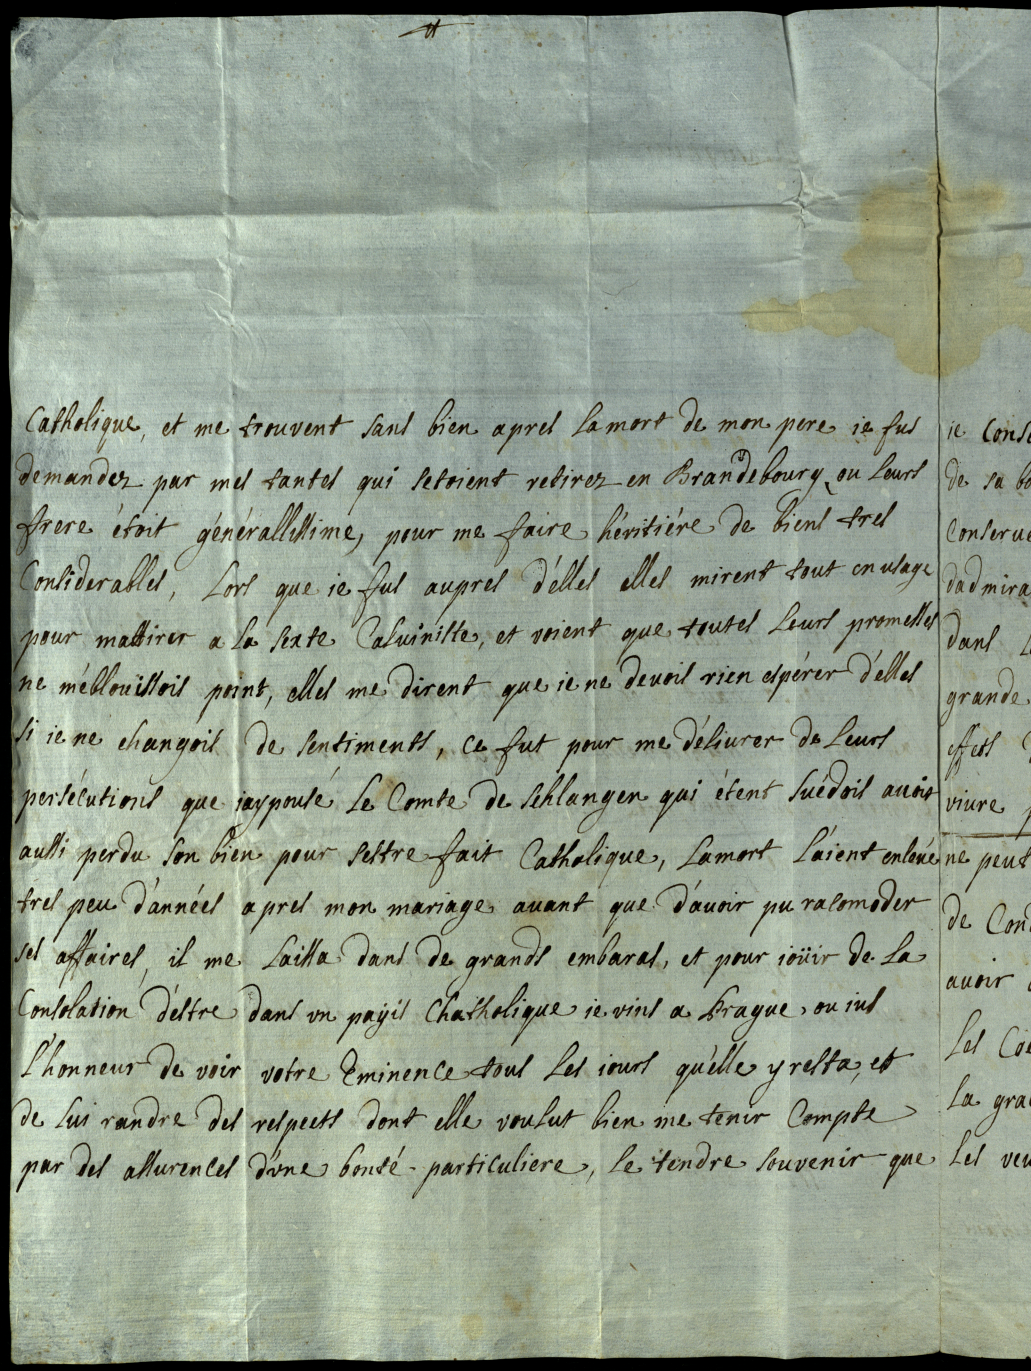 Catholique, et me trouvent sans bien apres la mort de mon pere ie fus
demandez par mes tantes qui setoient retirez en Brandebourg, ou leurs
frere étoit générallissime, pour me faire héritiére de biens tres
Considerables, Lors que ie fus aupres d'élles elles mirent tout en usage
pour mattirer a la sexte Calvinisté, et voient que toutes leurs promesses
ne m'éblouissois point, elles me dirent que ie ne devois rien espérer d'élles
si ie ne changois de sentiments, ce fut pour me délivrer de leurs
persécutions que jaypousé Le Comte de Schlangen qui étent Suédois avoit
aussi perdu son bien pour sestre fait Catholique, Lamort L'aient enlevé
tres peu d'années apres mon mariage avant que d'avoir pu racomoder
ses affaires, il me Laissa dans de grands embaras, et pour ioüir de La
Consolation d'éstre dans vn payis Chatholique ie vins a Prague, ou ius
L'honneur de voir votre Eminence tous Les iours qu'élle y resta, et
de Lui randre des respects dont elle voulut bien me tenir Compte
par des assurences d'vne bonté particuliere, Le tendre souvenir que
ie
de sa
dans
grande
effets
vivre
ne peut
de
avoir
Les
La
Les